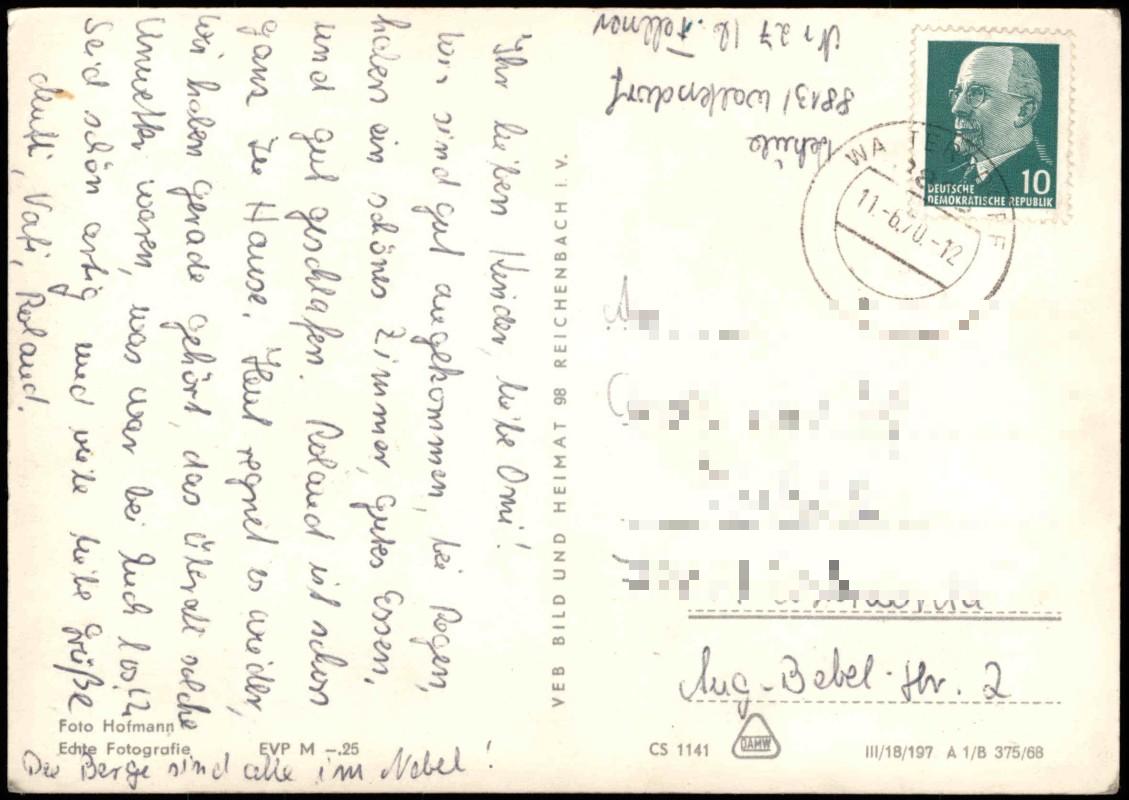 Ihr lieben Kinder, liebe Omi!
Wir sind gut angekommen, bei Regen,
haben ein schönes Zimmer, gutes Essen,
und gut geschlafen. Roland ist schon
ganz zu Hause. Heut regnet es wieder,
wir haben gerade gehört, das überall solche
Unwetter waren, was war bei Euch los??
Seid schön artig und viele liebe Grüße
Mutti, Vati, Roland.
Die Berge sind alle im Nebel!
Foto Hofmann
Echte Fotografie EVP M –.25
VEB BILD UND HEIMAT 98 REICHENBACH I. V.
Nr 27 b. Fellner
8813 / Waltersdorf
DEUTSCHE
DEMOKRATISCHE REPUBLIK
10
11.-6.70.-12
Aug.-Bebel-Str. 2
CS 1141
DAMW
III/18/197 A 1/B 375/68